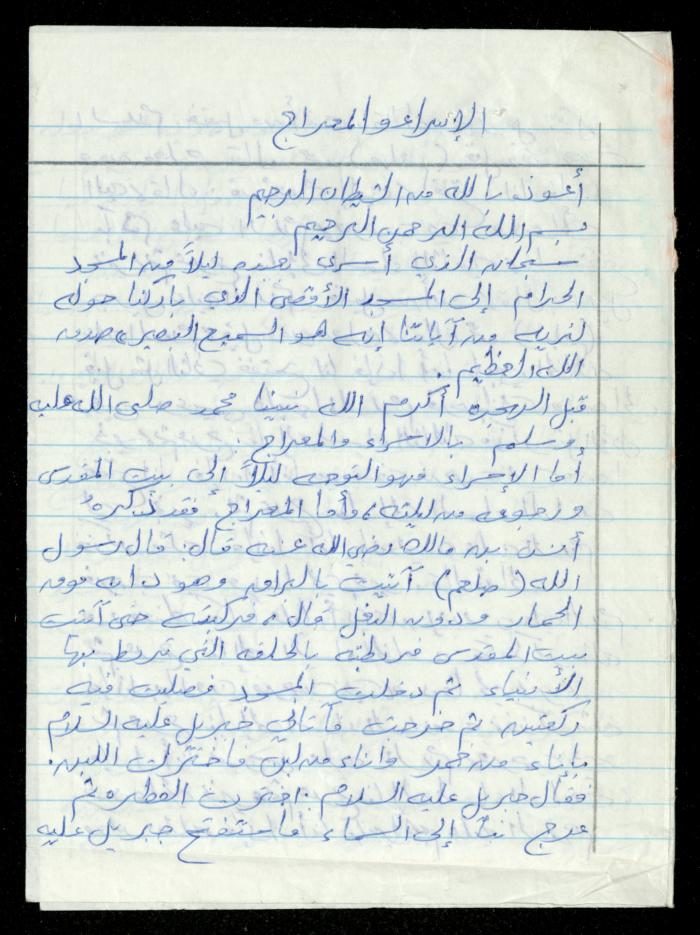 الإسراء والمعراج
أعوذ بالله من الشيطان الرجيم
بسم الله الرحمن الرحيم
سبحان الذي أسرى بعبده ليلاً من المسجد
الحرام إلى المسجد الأقصى الذي باركنا حوله
لنريه من آياتنا إنه هو السميع البصير، صدق
الله العظيم .
قبل الهجرة أكرم الله نبينا محمد صلى الله عليه
وسلم بالاسراء والمعراج .
أما الإسراء فهو التوجه ليلاً الى بيت المقدس
ورجوعه من ليلته، وأما المعراج فقد ذكره
أنس بن مالك رضي الله عنه قال: قال رسول
الله (صلعم) آتيت بالبراق وهو دابه فوق
الحمار ودون البغل قال، فركبته حتى آتيت
بيت المقدس فربطته بالحلقه التي تربط بها
الأنبياء ثم دخلت المسجد فصليت فيه
ركعتين ثم خرجت فأتاني جبريل عليه السلام
بإناء من خمر وإناء من لبن فاخترت اللبن.
فقال جبريل عليه السلام : اخترت الفطره ثم
عرج بنا إلى السماء فاستفتح جبريل عليه